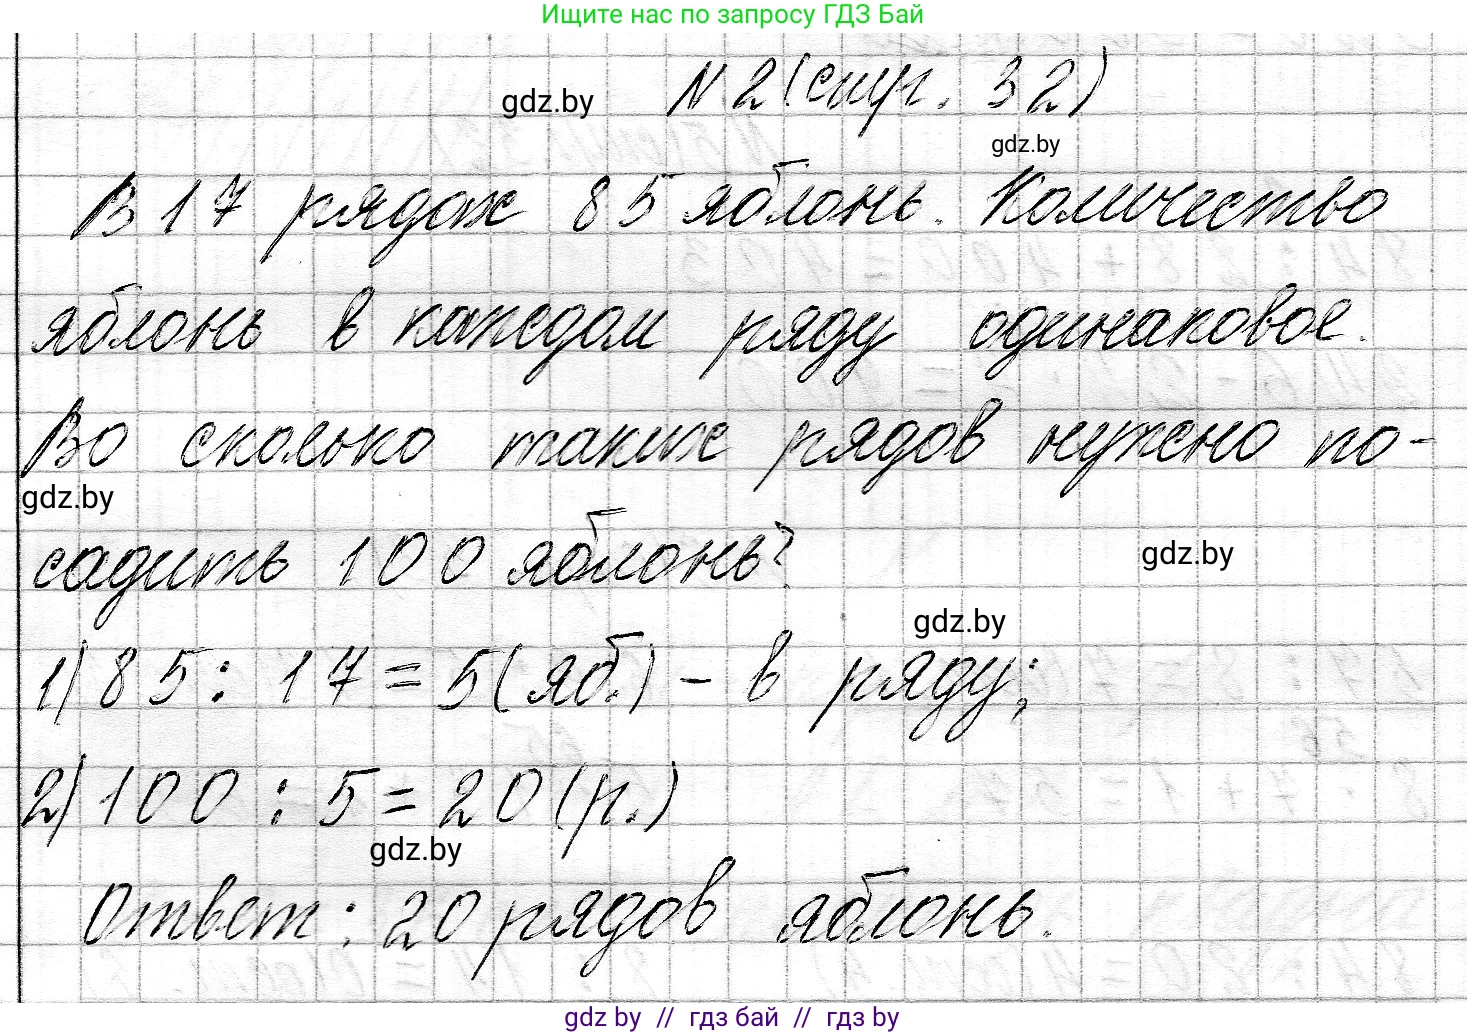 Ищите нас по запросу ГДЗ Бай
gdz.by N 2 (стр. 32)
gdz.by
В 17 рядах 85 яблонь. Количество
яблонь в каждом ряду одинаковое.
Во сколько таких рядов нужно по-
gdz.by
садить 100 яблонь?
gdz.by
gdz.by
1) 85 : 17 = 5 (яб.) - в ряду;
2) 100 : 5 = 20 (р.)
gdz.by
Ответ: 20 рядов яблонь.
gdz by // гдз бай // гдз by